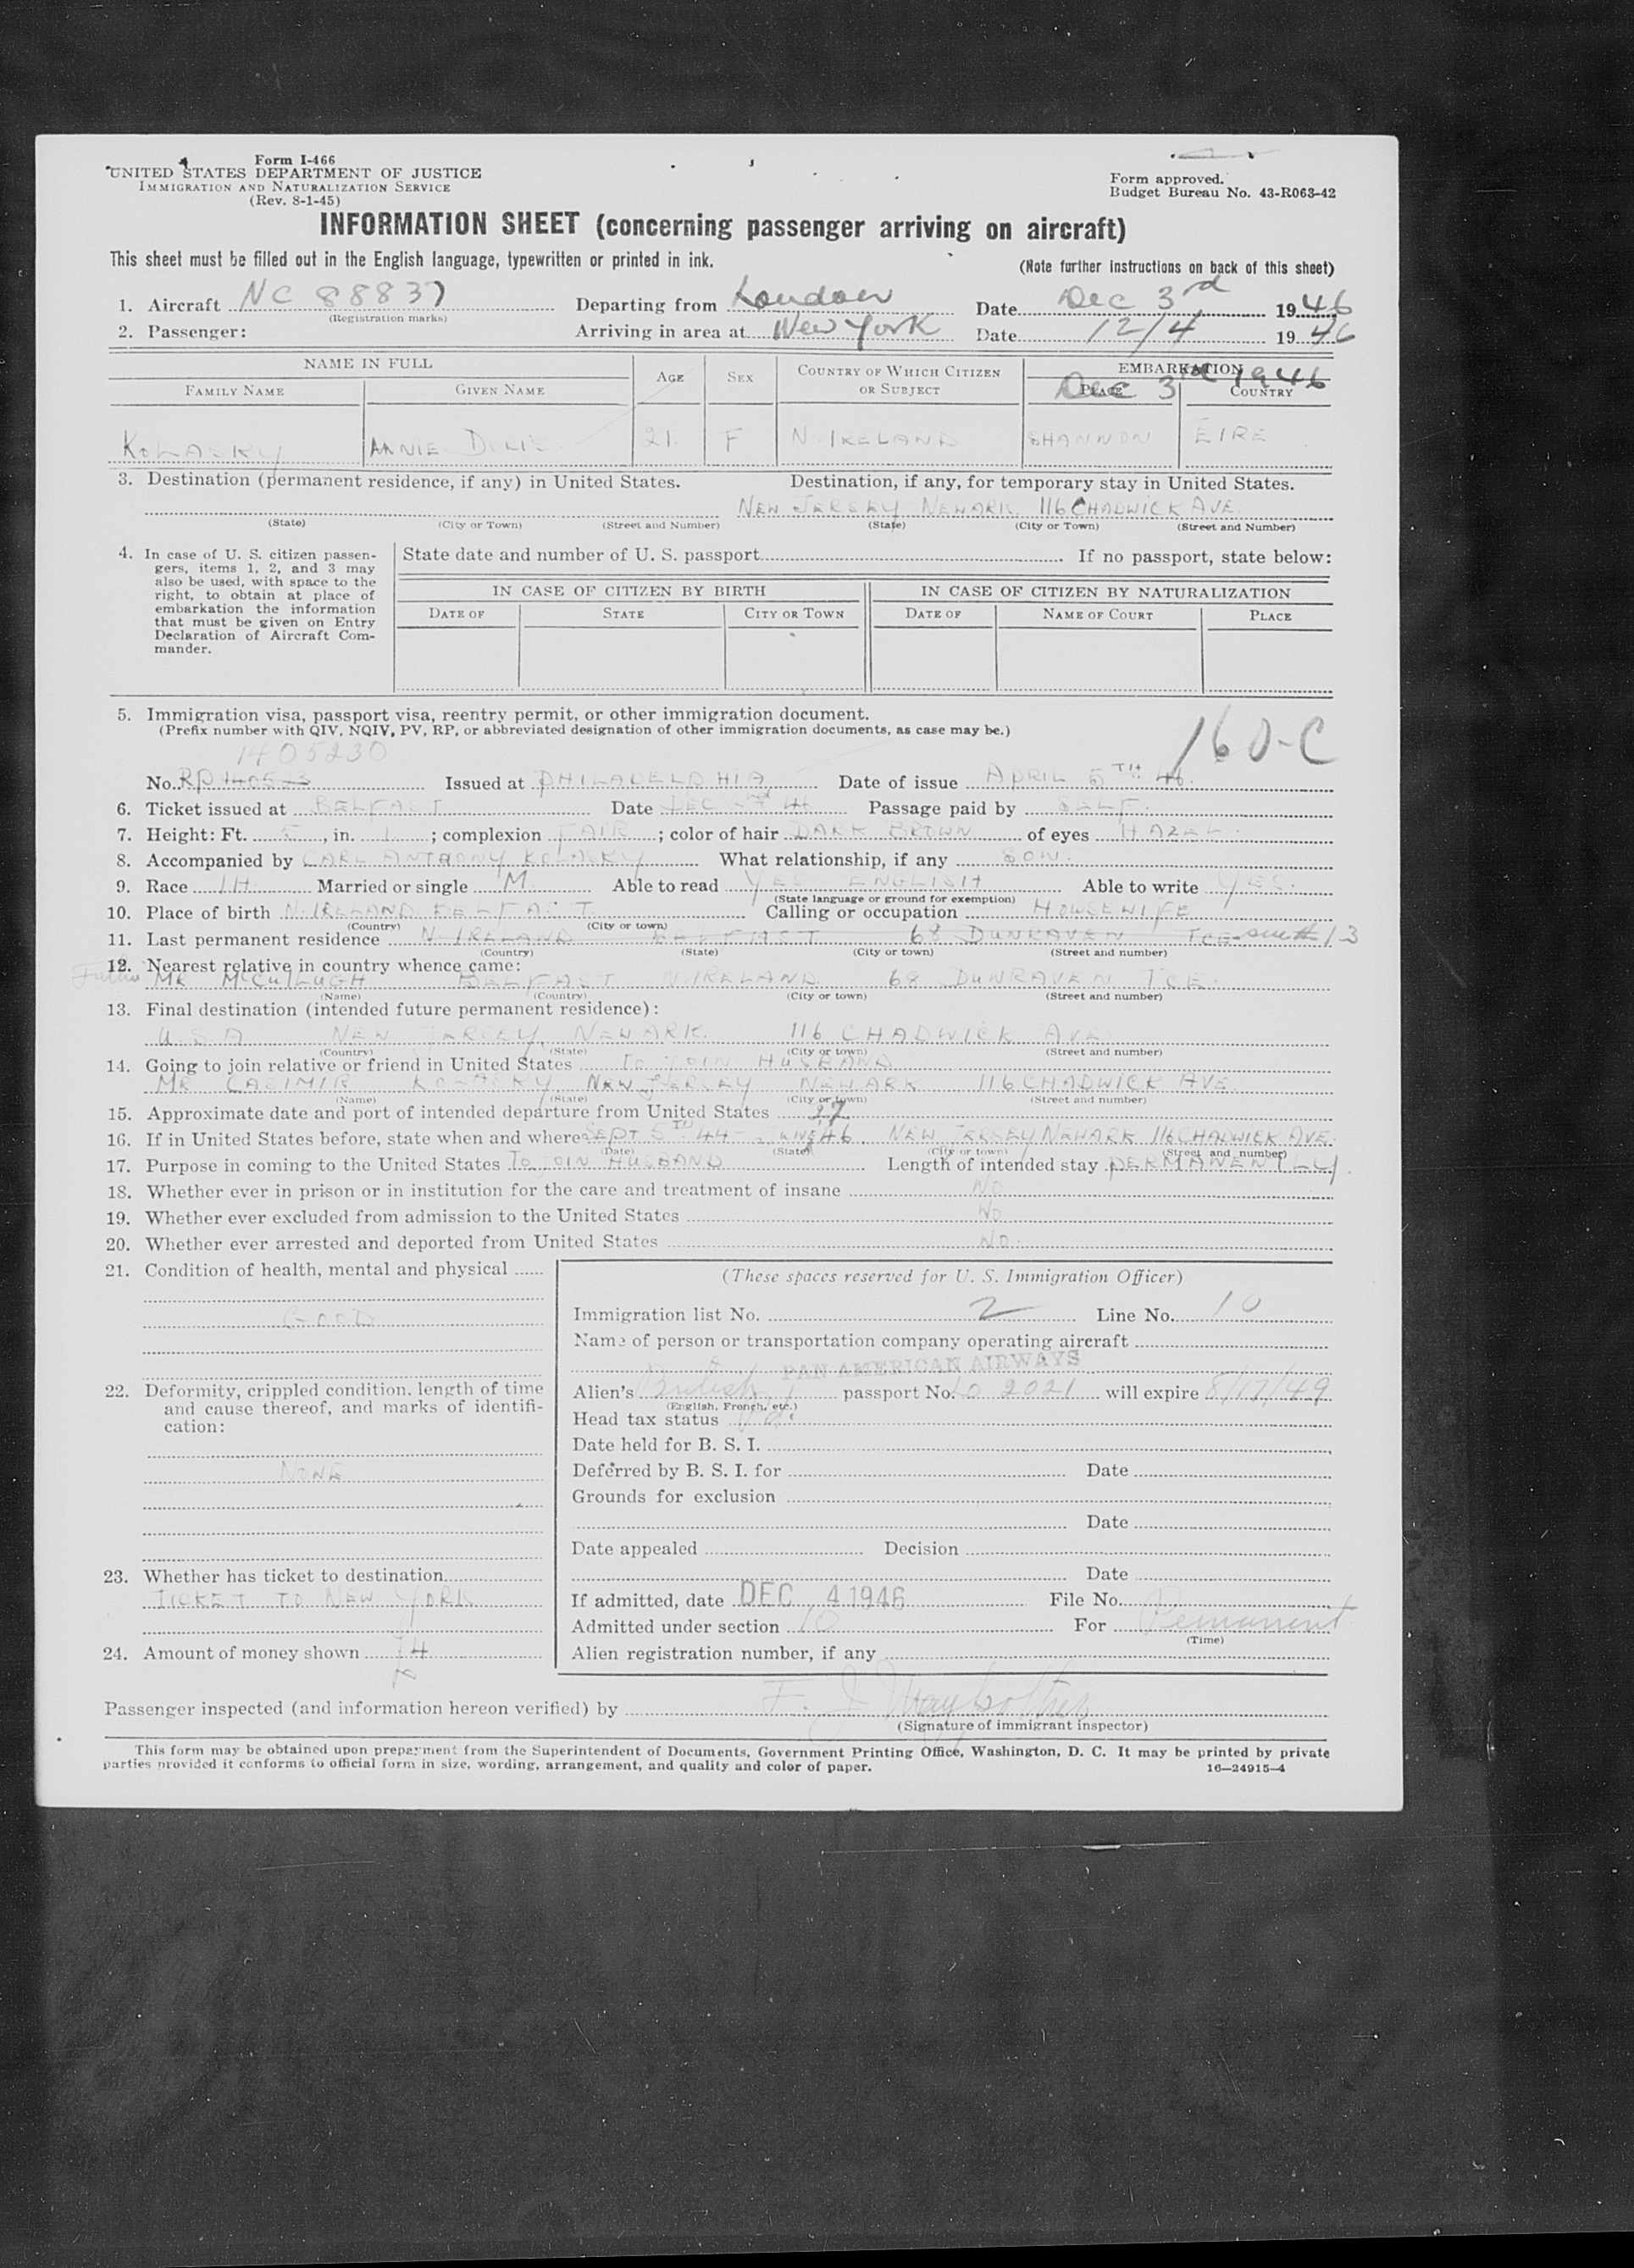 Form I-466
UNITED STATES DEPARTMENT OF JUSTICE
IMMIGRATION AND NATURALIZATION SERVICE
(Rev. 8-1-45)
Form approved.
Budget Bureau No. 43-R063-42
INFORMATION SHEET (concerning passenger arriving on aircraft)
This sheet must be filled out in the English language, typewritten or printed in ink.
(Note further instructions on back of this sheet)
1. Aircraft NC 88837 Departing from London Date Dec 3rd 1946
(Registration marks)
2. Passenger: Arriving in area at New York Date 12/4 1946
NAME IN FULL AGE SEX COUNTRY OF WHICH CITIZEN OR SUBJECT EMBARKATION
Dec 3rd 1946
FAMILY NAME GIVEN NAME PLACE COUNTRY
KOLASKY ANNIE 21 F N. IRELAND SHANNON EIRE
3. Destination (permanent residence, if any) in United States. Destination, if any, for temporary stay in United States.
NEW JERSEY NEWARK 116 CHADWICK AVE.
(State) (City or Town) (Street and Number) (State) (City or Town) (Street and Number)
4. In case of U. S. citizen passengers, items 1, 2, and 3 may also be used, with space to the right, to obtain at place of embarkation the information that must be given on Entry Declaration of Aircraft Commander.
State date and number of U. S. passport If no passport, state below:
IN CASE OF CITIZEN BY BIRTH IN CASE OF CITIZEN BY NATURALIZATION
DATE OF STATE CITY OR TOWN DATE OF NAME OF COURT PLACE
5. Immigration visa, passport visa, reentry permit, or other immigration document.
(Prefix number with QIV, NQIV, PV, RP, or abbreviated designation of other immigration documents, as case may be.)
160-C
1405230
No. RP Issued at PHILADELPHIA Date of issue APRIL 5TH 46.
6. Ticket issued at BELFAST Date DEC Passage paid by SELF.
7. Height: Ft. 5, in. 1; complexion FAIR; color of hair DARK BROWN of eyes HAZEL.
8. Accompanied by CARL ANTHONY KOLASKY What relationship, if any SON.
9. Race IH. Married or single M. Able to read YES ENGLISH Able to write YES.
(State language or ground for exemption)
10. Place of birth N. IRELAND BELFAST Calling or occupation HOWSEWIFE
(Country) (City or town)
11. Last permanent residence N. IRELAND BELFAST 68 DUNRAVEN TCE
(Country) (State) (City or town) (Street and number)
12. Nearest relative in country whence came:
Father MR McCULLUGH BELFAST N. IRELAND 68 DUNRAVEN TCE.
(Name) (Country) (City or town) (Street and number)
13. Final destination (intended future permanent residence):
U.S.A NEW JERSEY NEWARK. 116 CHADWICK AVE
(Country) (State) (City or town) (Street and number)
14. Going to join relative or friend in United States TO JOIN HUSBAND
MR CASIMIR KOLASKY NEW JERSEY NEWARK 116 CHADWICK AVE.
(Name) (State) (City or town) (Street and number)
15. Approximate date and port of intended departure from United States
16. If in United States before, state when and where SEPT 5TH 44 - JUNE 46. NEW JERSEY NEWARK 116 CHADWICK AVE.
(Date) (State) (City or town) (Street and number)
17. Purpose in coming to the United States TO JOIN HUSBAND Length of intended stay PERMANENTLY.
18. Whether ever in prison or in institution for the care and treatment of insane NO
19. Whether ever excluded from admission to the United States NO
20. Whether ever arrested and deported from United States NO.
21. Condition of health, mental and physical
GOOD
22. Deformity, crippled condition, length of time and cause thereof, and marks of identification:
NONE
23. Whether has ticket to destination
TICKET TO NEW YORK
24. Amount of money shown
(These spaces reserved for U. S. Immigration Officer)
Immigration list No. 2 Line No. 10
Name of person or transportation company operating aircraft
PAN AMERICAN AIRWAYS
Alien's British passport No. 2021 will expire 8/17/49
(English, French, etc.)
Head tax status
Date held for B. S. I.
Deferred by B. S. I. for Date
Grounds for exclusion
Date
Date appealed Decision
Date
If admitted, date DEC 4 1946 File No.
Admitted under section 10 For Permanent
(Time)
Alien registration number, if any
Passenger inspected (and information hereon verified) by
(Signature of immigrant inspector)
This form may be obtained upon prepayment from the Superintendent of Documents, Government Printing Office, Washington, D. C. It may be printed by private
parties provided it conforms to official form in size, wording, arrangement, and quality and color of paper.
16—24915-4